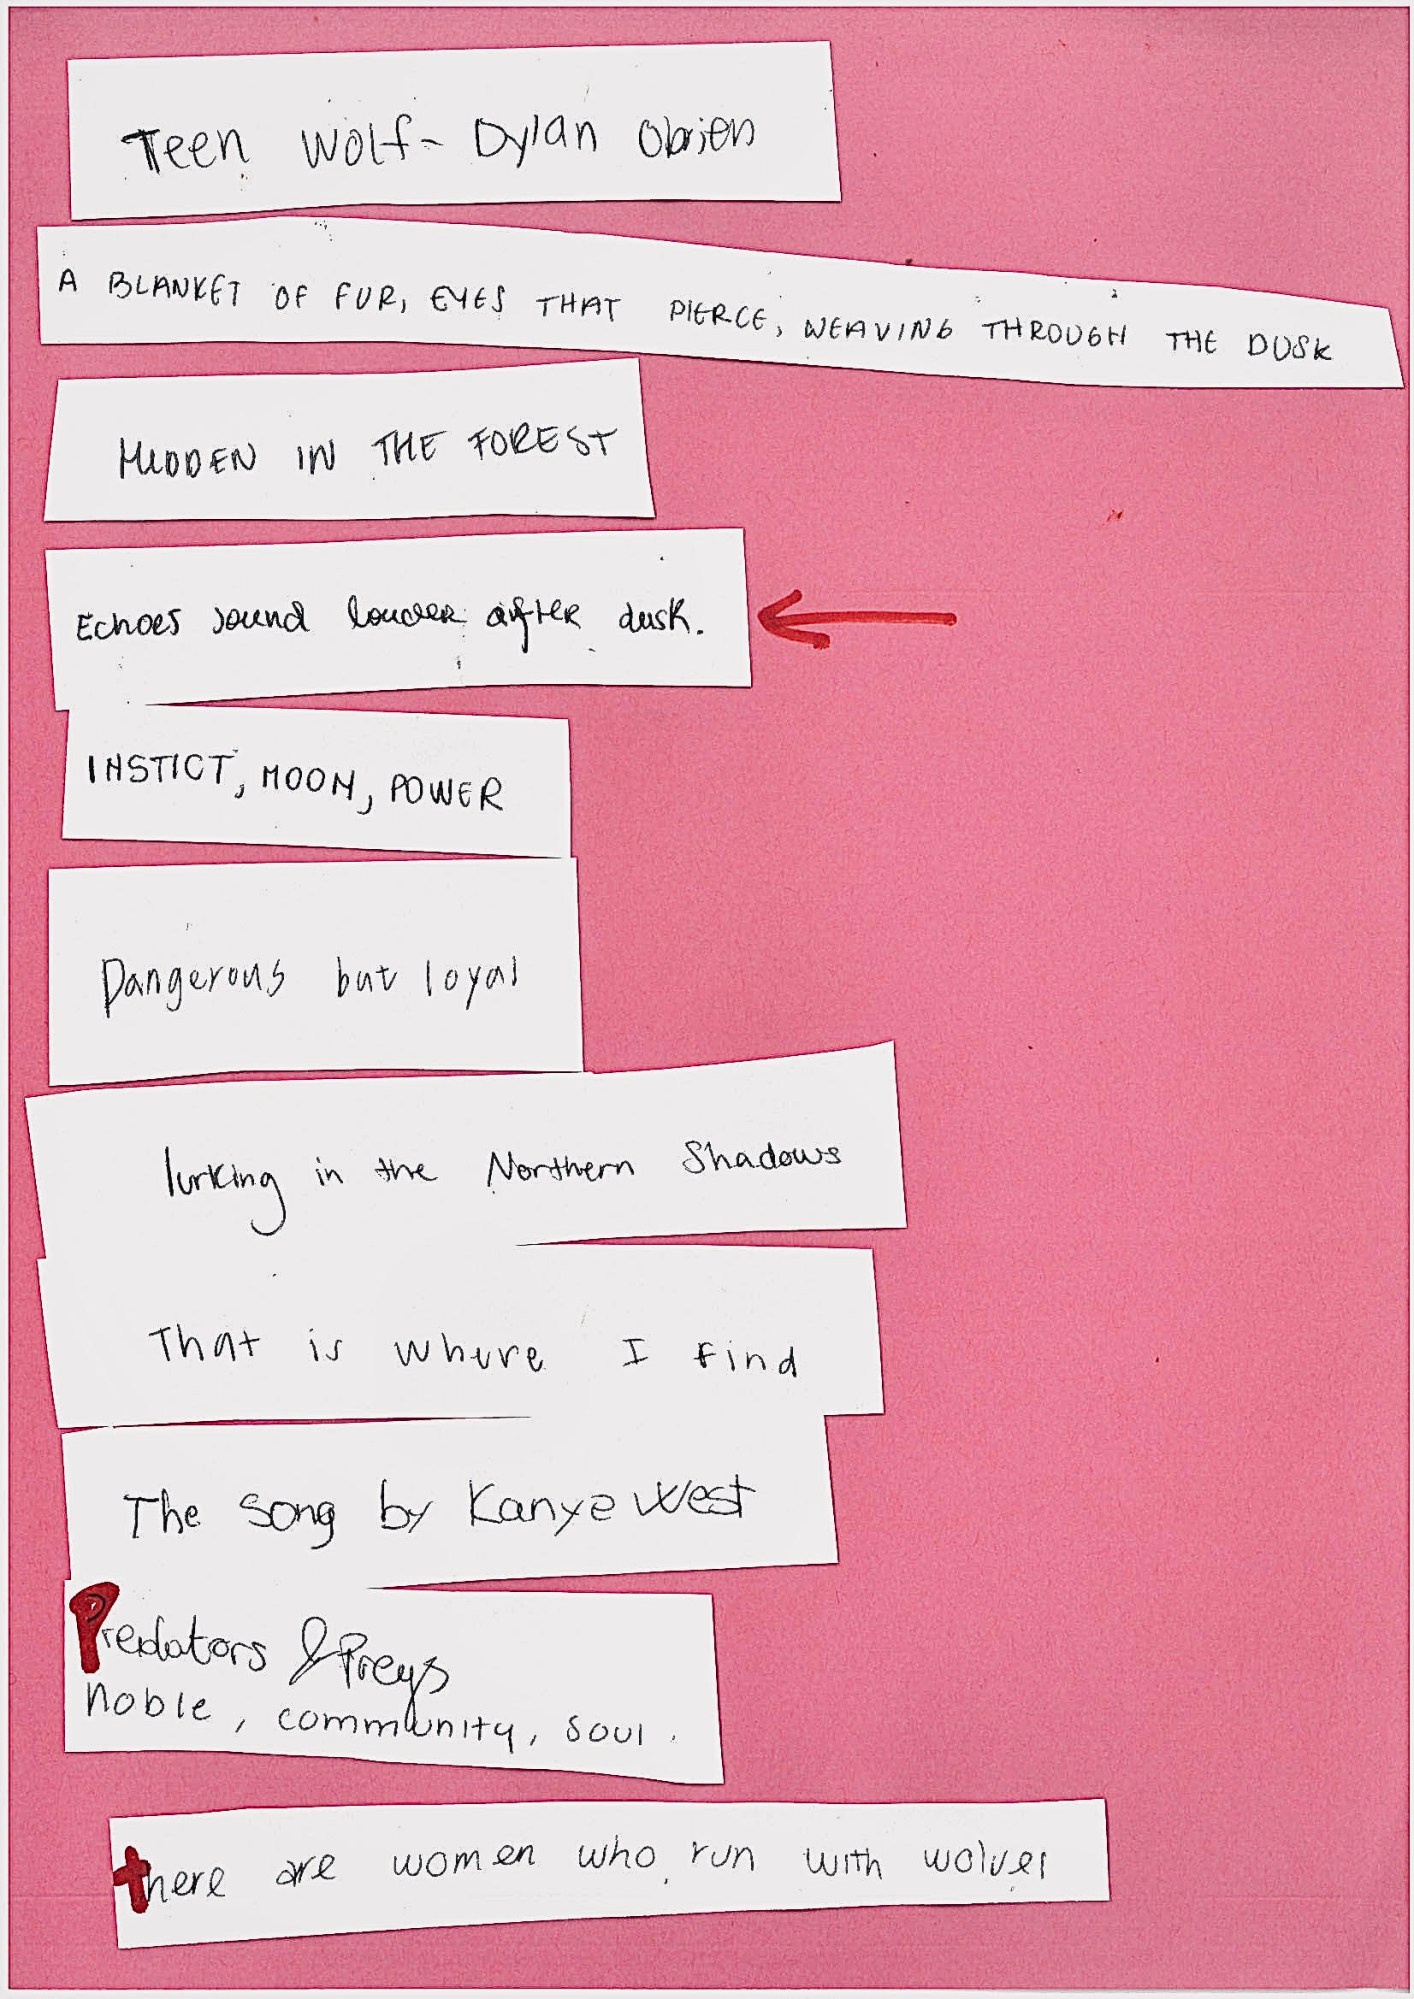 Teen Wolf- Dylan Obrien
A BLANKET OF FUR, EYES THAT PIERCE, WEAVING THROUGH THE DUSK
HIDDEN IN THE FOREST
Echoes sound louder after dusk.
INSTICT, MOON, POWER
Dangerous but loyal
lurking in the Northern Shadows
That is where I find
The song by Kanye West
Predators & Preys
noble, community, soul.
there are women who run with wolves